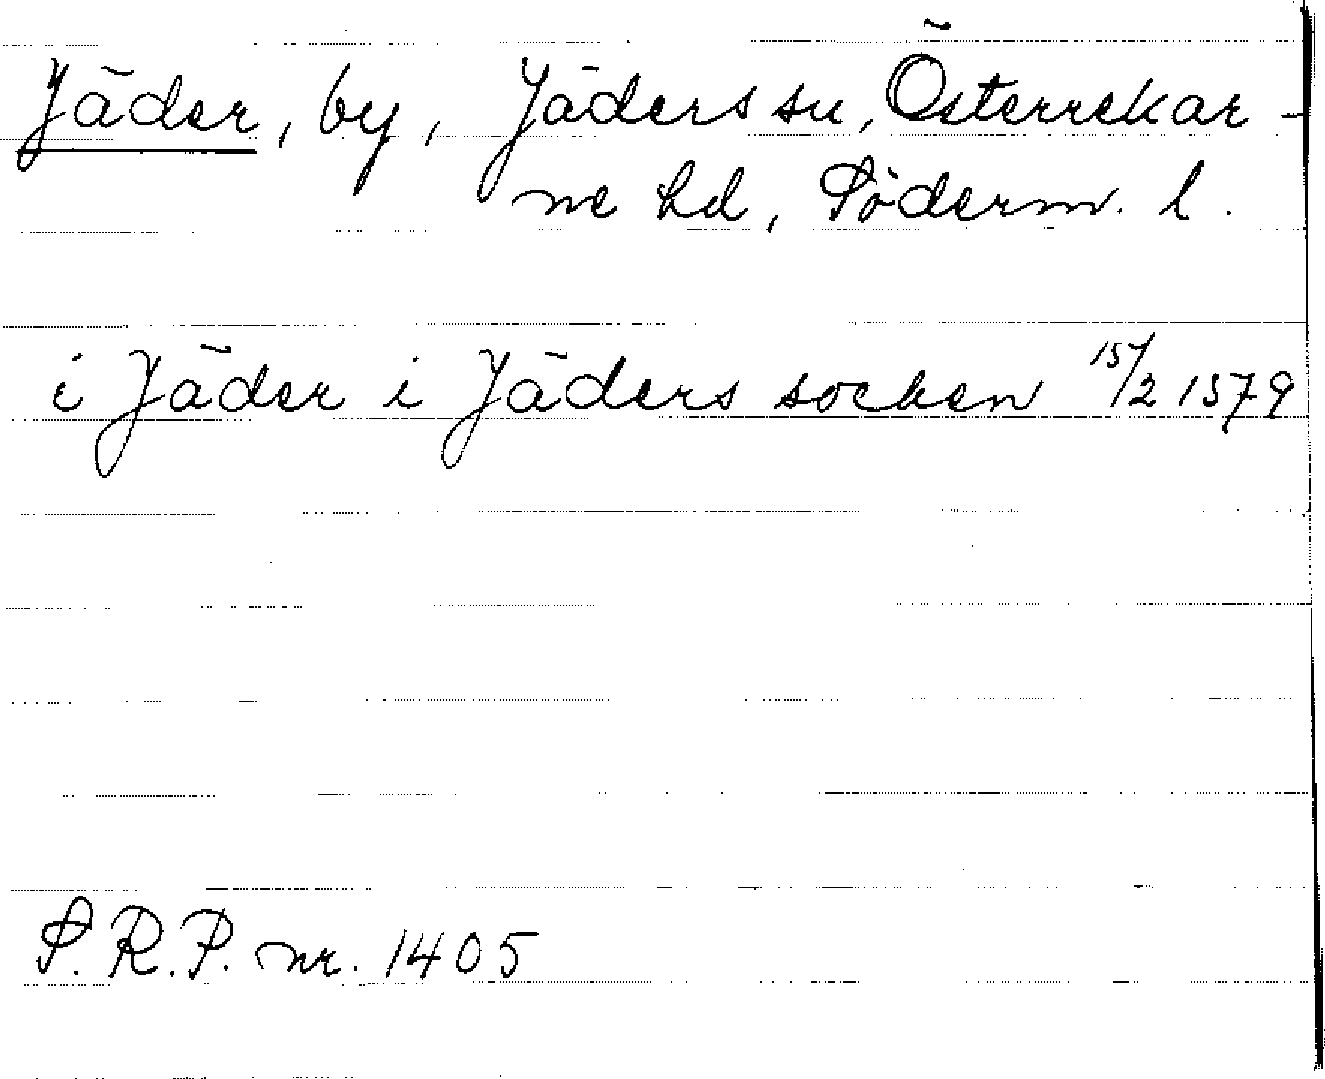 Jäder, by, Jäders sn, Österrekar-
ne hd, Söderm. l.
i Jäder i Jäders socken 15/2 1579
S.R.P. nr. 1405